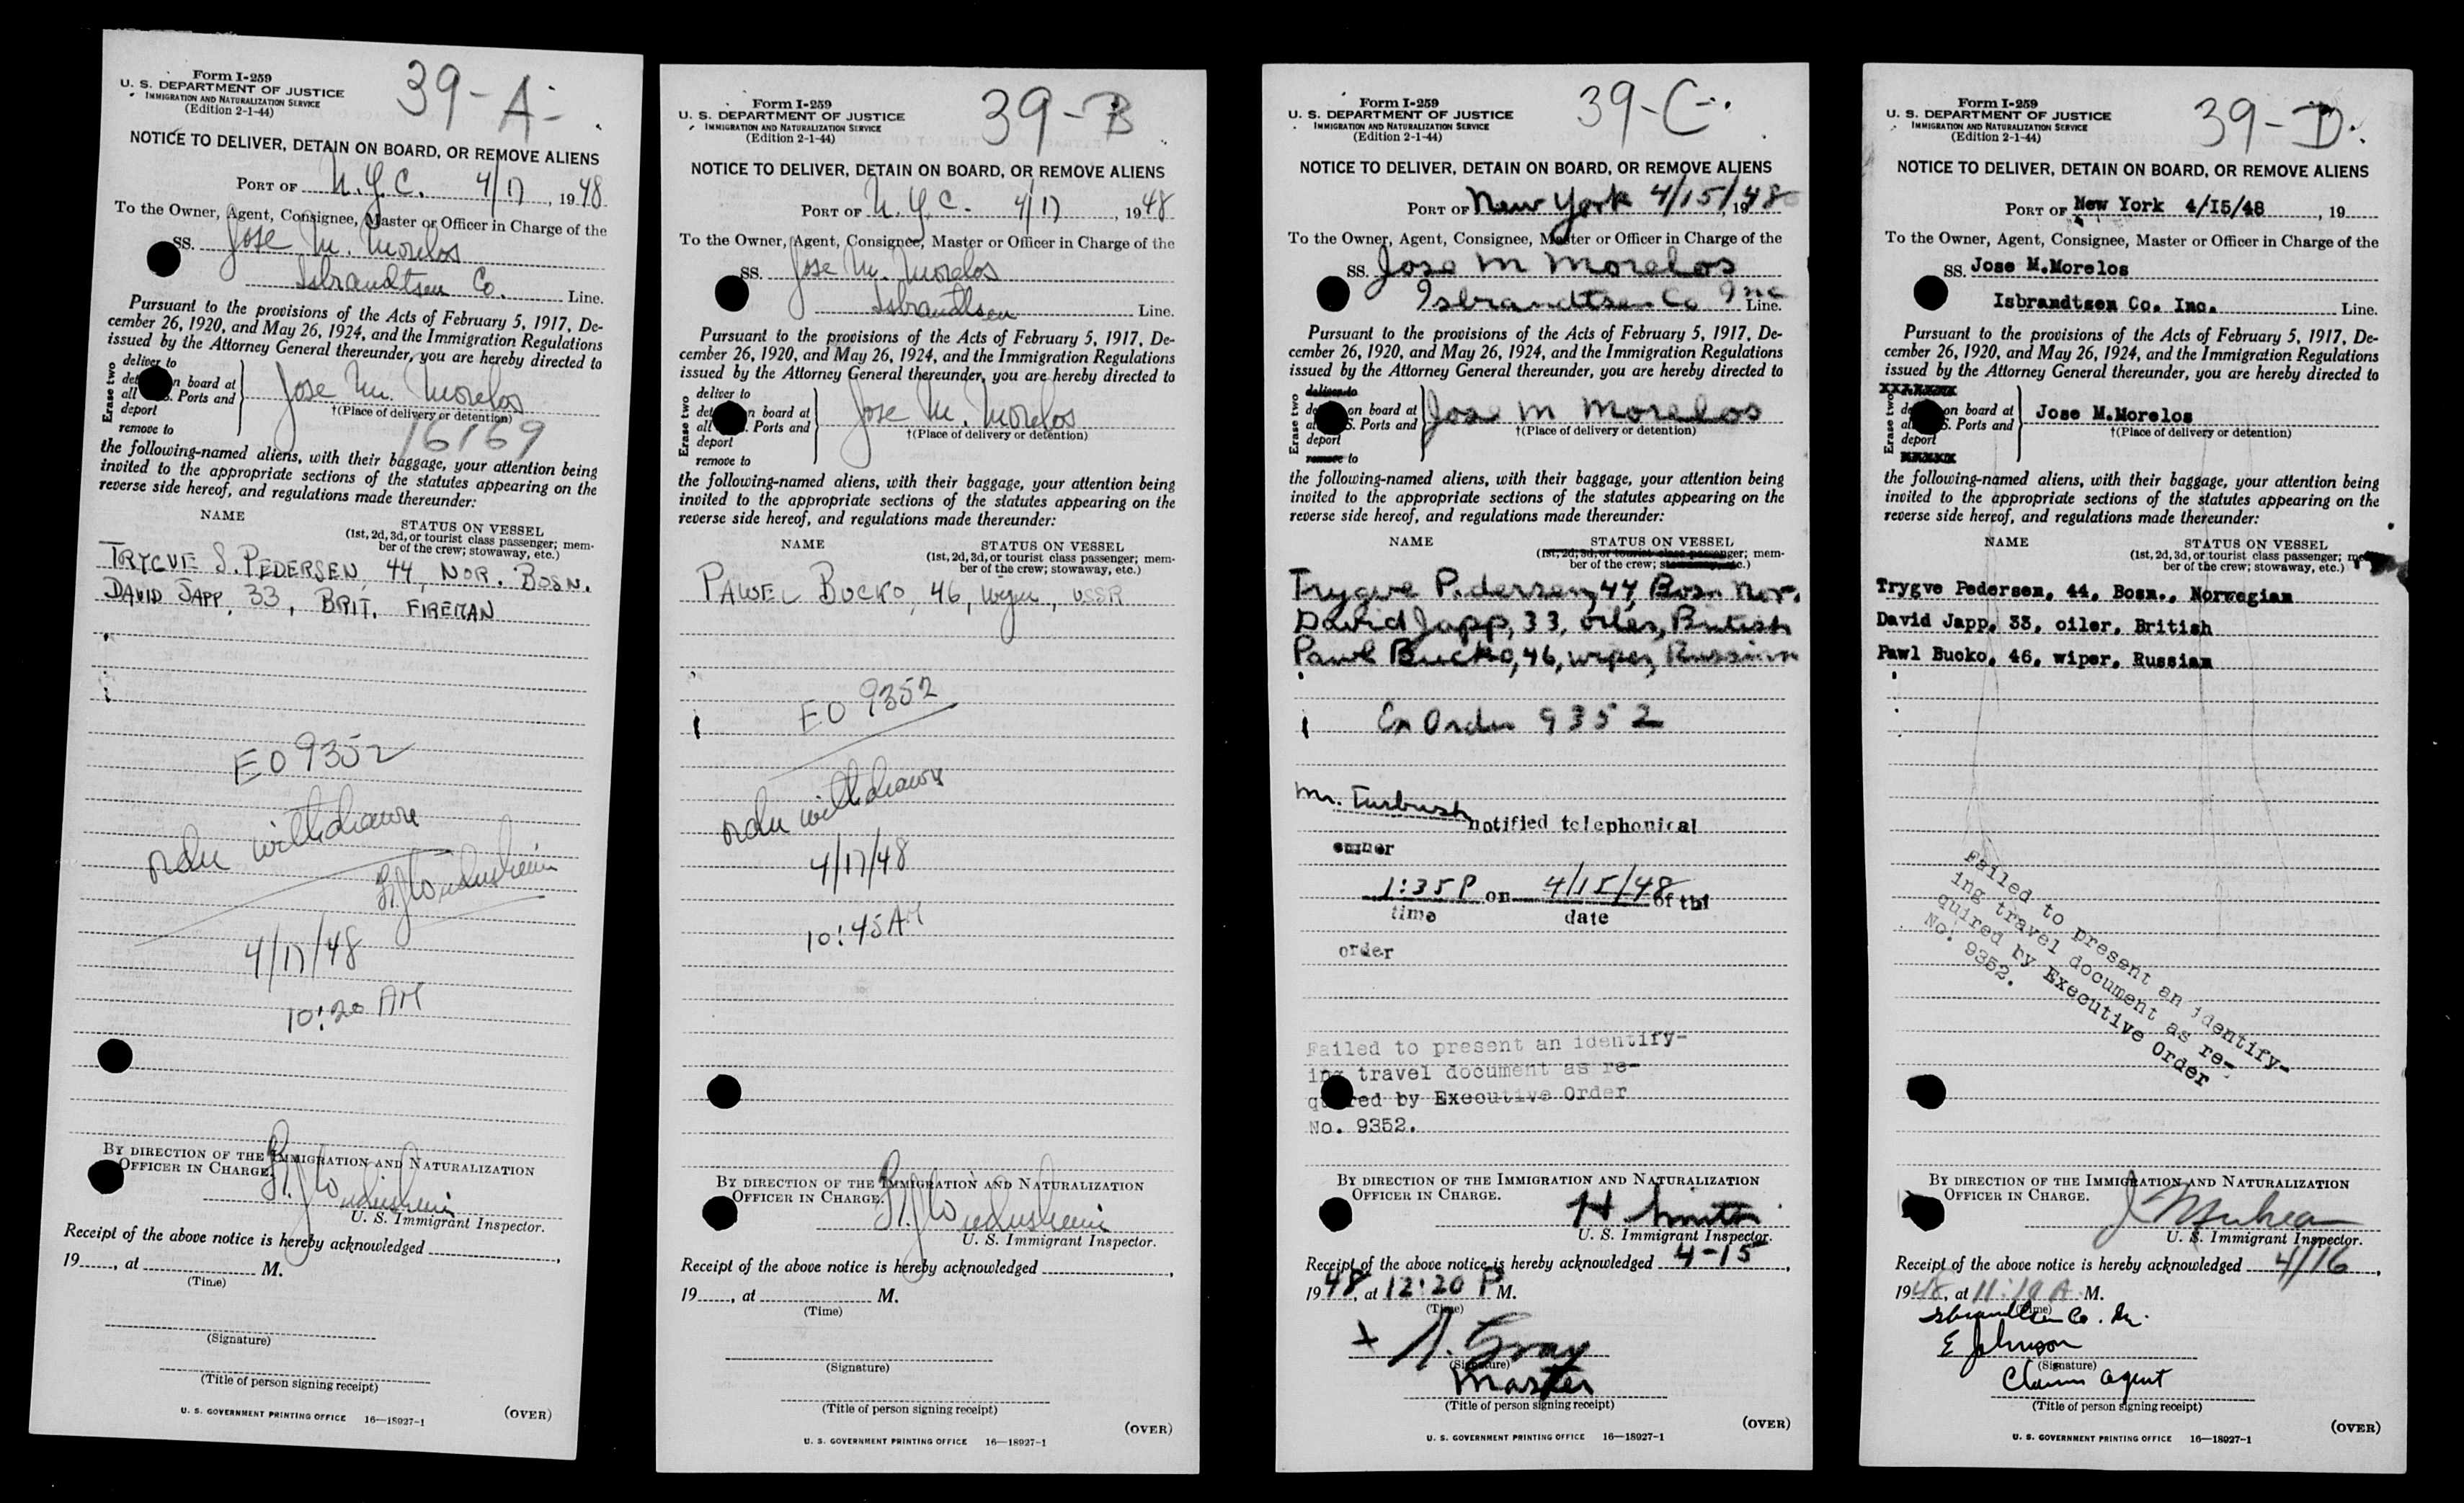 Form I-259
U. S. DEPARTMENT OF JUSTICE
IMMIGRATION AND NATURALIZATION SERVICE
(Edition 2-1-44)
39-A-
NOTICE TO DELIVER, DETAIN ON BOARD, OR REMOVE ALIENS
PORT OF N.Y.C. 4/17, 1948
To the Owner, Agent, Consignee, Master or Officer in Charge of the
SS. Jose M. Morelos
Isbrandtsen Co. Line.
Pursuant to the provisions of the Acts of February 5, 1917, De-
cember 26, 1920, and May 26, 1924, and the Immigration Regulations
issued by the Attorney General thereunder, you are hereby directed to
Erase two
deliver to
det n board at
all S. Ports and
deport
remove to
Jose M. Morelos
†(Place of delivery or detention)
16169
the following-named aliens, with their baggage, your attention being
invited to the appropriate sections of the statutes appearing on the
reverse side hereof, and regulations made thereunder:
NAME STATUS ON VESSEL
(1st, 2d, 3d, or tourist class passenger; mem-
ber of the crew; stowaway, etc.)
TRYGVE S. PEDERSEN, 44, NOR. BOSN.
DAVID JAPP, 33, BRIT. FIREMAN
EO 9352
order withdrawn
4/17/48
10:20 AM
BY DIRECTION OF THE IMMIGRATION AND NATURALIZATION
OFFICER IN CHARGE.
U. S. Immigrant Inspector.
Receipt of the above notice is hereby acknowledged
19, at M.
(Time)
(Signature)
(Title of person signing receipt)
U. S. GOVERNMENT PRINTING OFFICE 16—18927-1
(OVER)
Form I-259
U. S. DEPARTMENT OF JUSTICE
IMMIGRATION AND NATURALIZATION SERVICE
(Edition 2-1-44)
39-B
NOTICE TO DELIVER, DETAIN ON BOARD, OR REMOVE ALIENS
PORT OF N.Y.C. 4/17, 1948
To the Owner, Agent, Consignee, Master or Officer in Charge of the
SS. Jose M. Morelos
Isbrandtsen Line.
Pursuant to the provisions of the Acts of February 5, 1917, De-
cember 26, 1920, and May 26, 1924, and the Immigration Regulations
issued by the Attorney General thereunder, you are hereby directed to
Erase two
deliver to
det n board at
all Ports and
deport
remove to
Jose M. Morelos
†(Place of delivery or detention)
the following-named aliens, with their baggage, your attention being
invited to the appropriate sections of the statutes appearing on the
reverse side hereof, and regulations made thereunder:
NAME STATUS ON VESSEL
(1st, 2d, 3d, or tourist class passenger; mem-
ber of the crew; stowaway, etc.)
PAWEL BUCKO, 46, wiper, USSR
EO 9352
order withdrawn
4/17/48
10:45 AM
BY DIRECTION OF THE IMMIGRATION AND NATURALIZATION
OFFICER IN CHARGE.
U. S. Immigrant Inspector.
Receipt of the above notice is hereby acknowledged
19, at M.
(Time)
(Signature)
(Title of person signing receipt)
U. S. GOVERNMENT PRINTING OFFICE 16—18927-1
(OVER)
Form I-259
U. S. DEPARTMENT OF JUSTICE
IMMIGRATION AND NATURALIZATION SERVICE
(Edition 2-1-44)
39-C-
NOTICE TO DELIVER, DETAIN ON BOARD, OR REMOVE ALIENS
PORT OF New York 4/15/48, 19
To the Owner, Agent, Consignee, Master or Officer in Charge of the
SS. Jose M Morelos
Isbrandtsen Co Inc Line.
Pursuant to the provisions of the Acts of February 5, 1917, De-
cember 26, 1920, and May 26, 1924, and the Immigration Regulations
issued by the Attorney General thereunder, you are hereby directed to
Erase two
deliver to
de on board at
al S. Ports and
deport
remove to
Jose M Morelos
†(Place of delivery or detention)
the following-named aliens, with their baggage, your attention being
invited to the appropriate sections of the statutes appearing on the
reverse side hereof, and regulations made thereunder:
NAME STATUS ON VESSEL
(1st, 2d, 3d, or tourist class passenger; mem-
ber of the crew; stowaway, etc.)
Trygve Pedersen, 44 Bosn Nor.
David Japp, 33, oiler, British
Pawl Bucko, 46, wiper, Russian
Ex Order 9352
Mr. Turbush notified telephonical
owner
1:35 P on 4/15/48 of thi
time date
order
Failed to present an identify-
ing travel document as re-
quired by Executive Order
No. 9352.
BY DIRECTION OF THE IMMIGRATION AND NATURALIZATION
OFFICER IN CHARGE.
H. Smith
U. S. Immigrant Inspector.
Receipt of the above notice is hereby acknowledged 4-15,
1948, at 12:20 P M.
(Time)
+ A. Gray
(Signature)
Master
(Title of person signing receipt)
U. S. GOVERNMENT PRINTING OFFICE 16—18927-1
(OVER)
Form I-259
U. S. DEPARTMENT OF JUSTICE
IMMIGRATION AND NATURALIZATION SERVICE
(Edition 2-1-44)
39-D.
NOTICE TO DELIVER, DETAIN ON BOARD, OR REMOVE ALIENS
PORT OF New York 4/I5/48, 19
To the Owner, Agent, Consignee, Master or Officer in Charge of the
SS. Jose M.Morelos
Isbrandtsen Co. Inc. Line.
Pursuant to the provisions of the Acts of February 5, 1917, De-
cember 26, 1920, and May 26, 1924, and the Immigration Regulations
issued by the Attorney General thereunder, you are hereby directed to
Erase two
de on board at
al S. Ports and
deport
Jose M.Morelos
†(Place of delivery or detention)
the following-named aliens, with their baggage, your attention being
invited to the appropriate sections of the statutes appearing on the
reverse side hereof, and regulations made thereunder:
NAME STATUS ON VESSEL
(1st, 2d, 3d, or tourist class passenger;
ber of the crew; stowaway, etc.)
Trygve Pedersen, 44, Bosn., Norwegian
David Japp, 33, oiler, British
Pawl Bucko, 46, wiper, Russian
Failed to present an identify-
ing travel document as re-
quired by Executive Order
No. 9352.
BY DIRECTION OF THE IMMIGRATION AND NATURALIZATION
OFFICER IN CHARGE.
U. S. Immigrant Inspector.
Receipt of the above notice is hereby acknowledged 4/16,
1948, at 11:10 A M.
(Time)
Isbrandtsen Co. In.
E Johnson
(Signature)
Claim agent
(Title of person signing receipt)
U. S. GOVERNMENT PRINTING OFFICE 16—18927-1
(OVER)